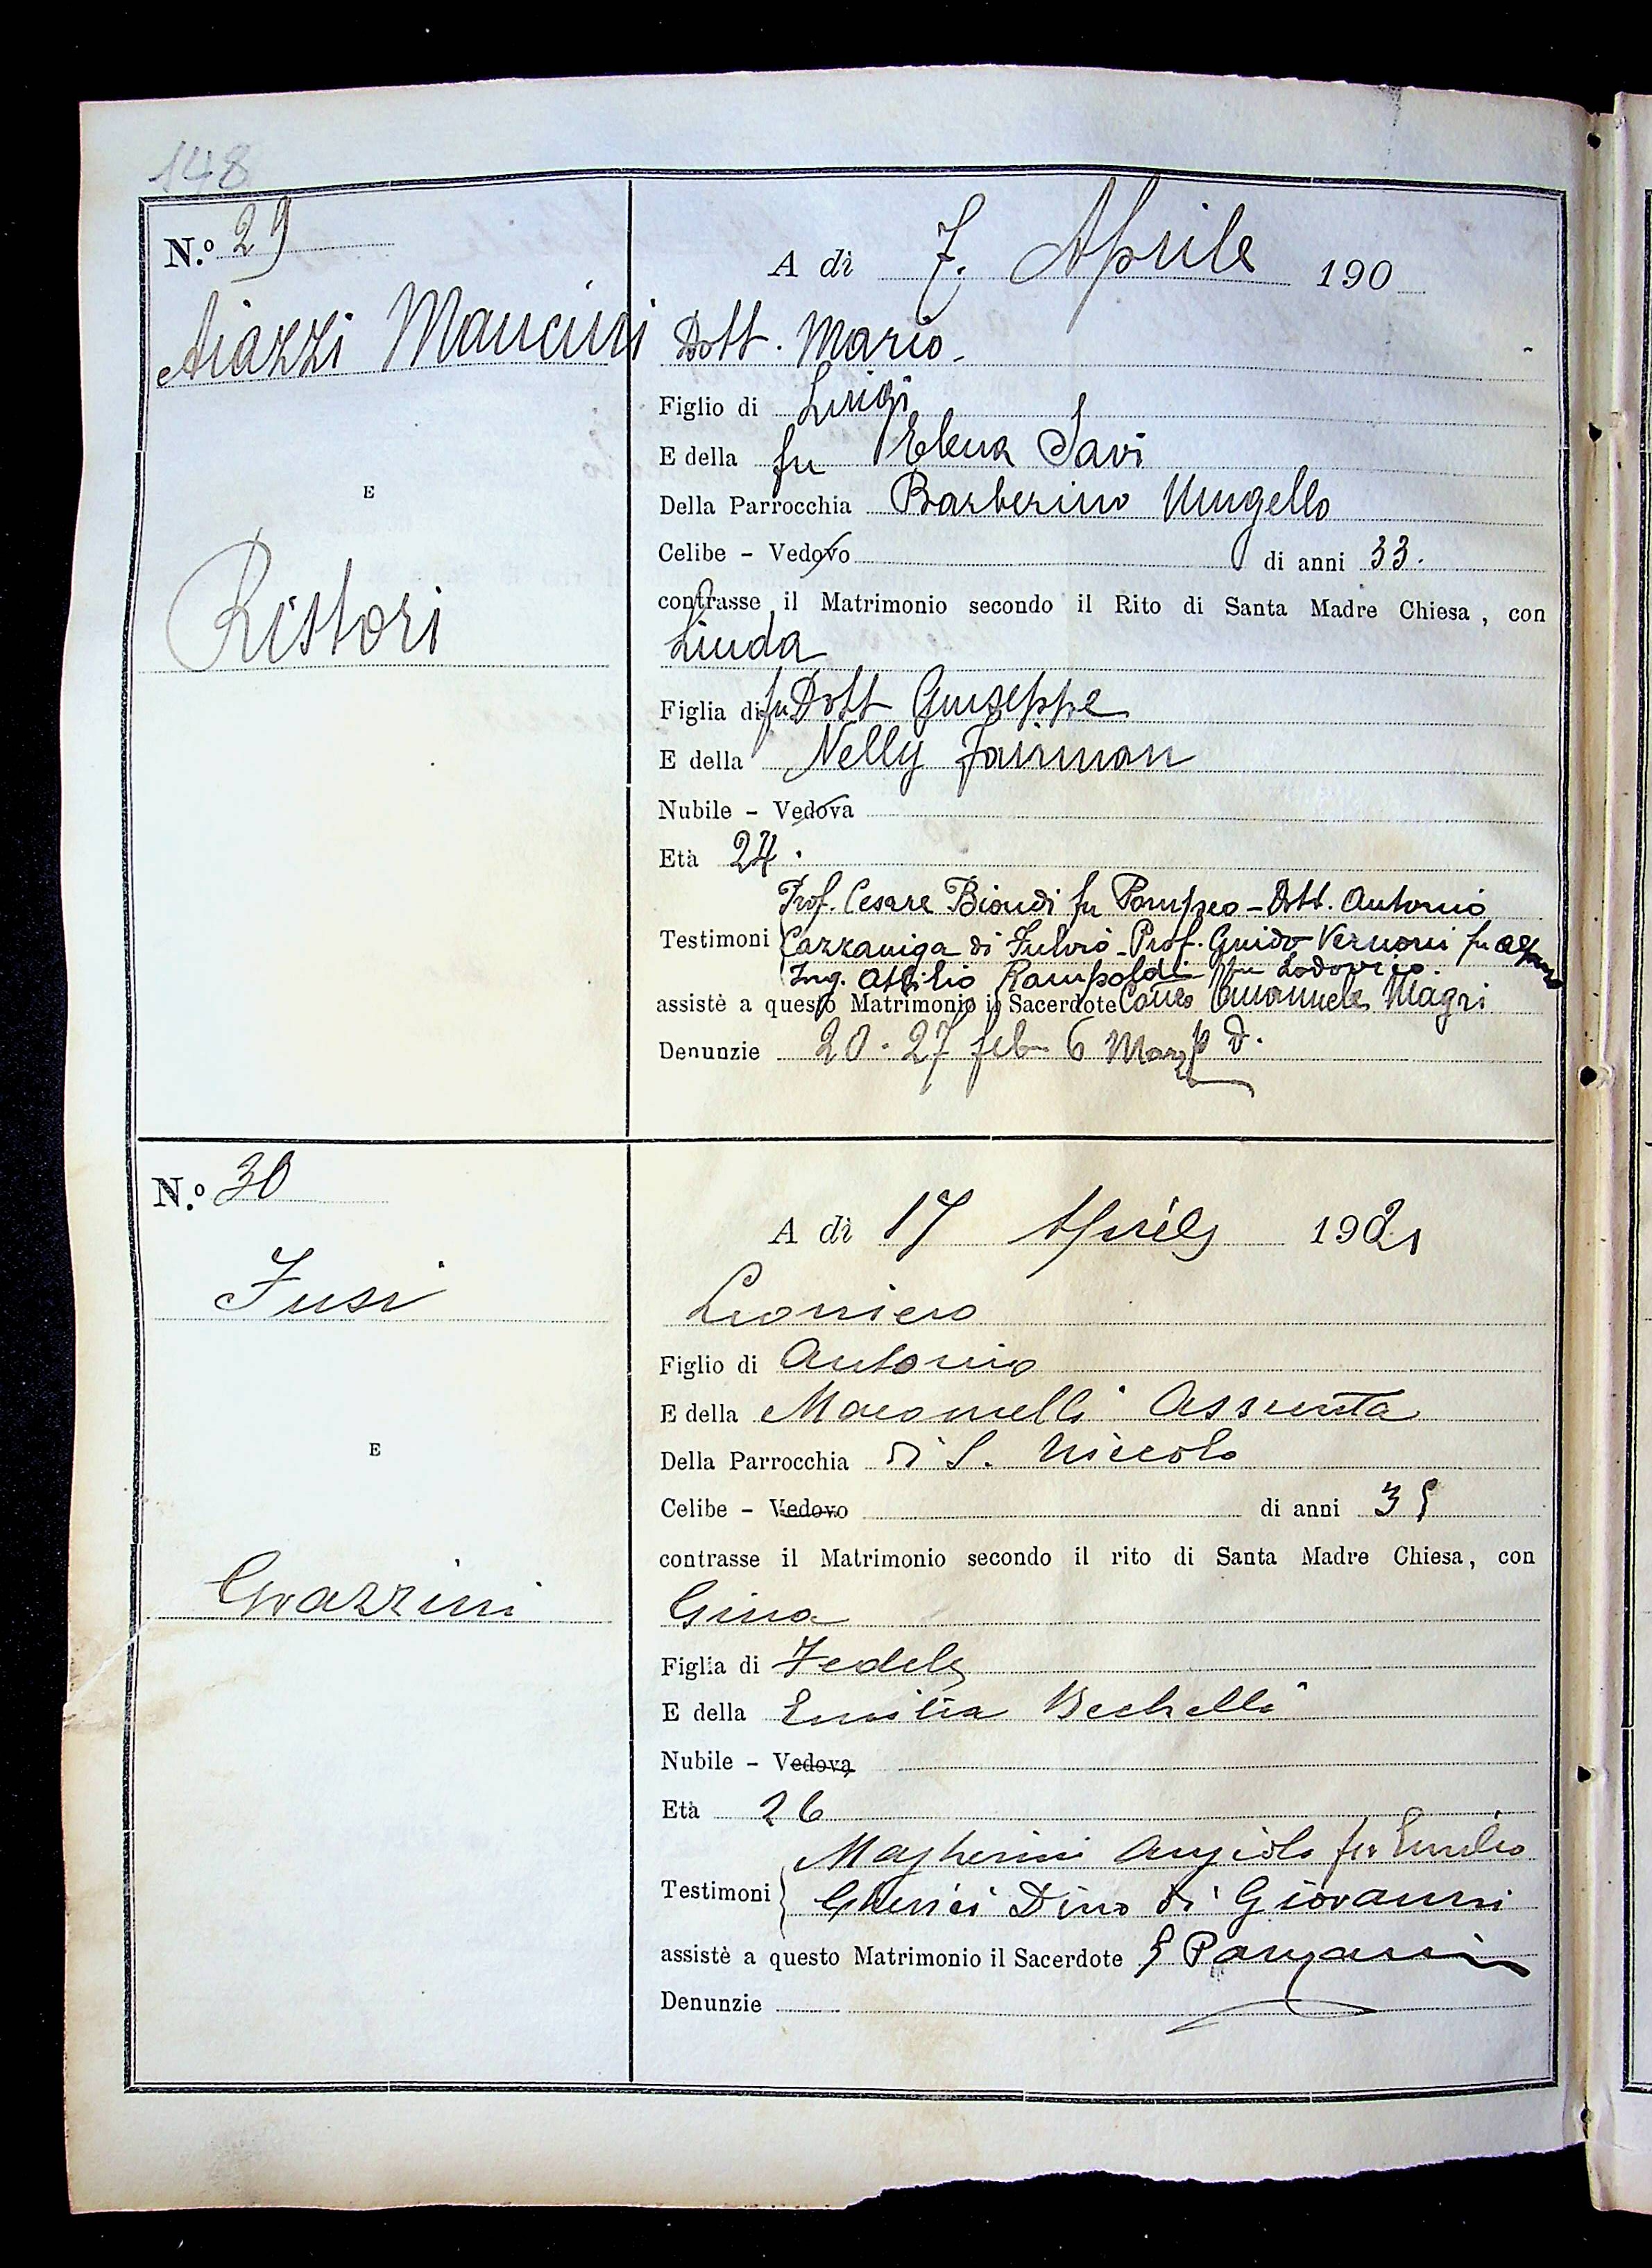 148
N.º 29
A dì 7. Aprile 190
Aiazzi Mancini Dott. Mario
Figlio di Luigi
E della fu Elena Savi
Della Parrocchia Barberino Mugello
Celibe - Vedovo di anni 33.
E
contrasse il Matrimonio secondo il Rito di Santa Madre Chiesa, con
Ristori Linda
Figlia di fu Dott Giuseppe
E della Nelly Fairman
Nubile - Vedova
Età 24.
Prof. Cesare Biondi fu Pompeo - Dott. Antonio
Testimoni Cazzaniga di Fulvio - Prof. Guido Vernoni fu
Ing. Attilio Rampoldi fu Lodovico.
assistè a questo Matrimonio il Sacerdote Emanuele Magri
Denunzie 20. 27 feb 6 Marzo d.
N.º 30
A dì 17 Aprile 1921
Fusi
Figlio di Antonio
E della Assunta
E
Della Parrocchia di S. Niccolo
Celibe - Vedovo di anni 35
contrasse il Matrimonio secondo il rito di Santa Madre Chiesa, con
Grazzini Gina
Figlia di Fedele
E della Emilia Bechelli
Nubile - Vedova
Età 26
Magherini Angiolo fu Emilio
Testimoni Gherici Dino di Giovanni
assistè a questo Matrimonio il Sacerdote
Denunzie